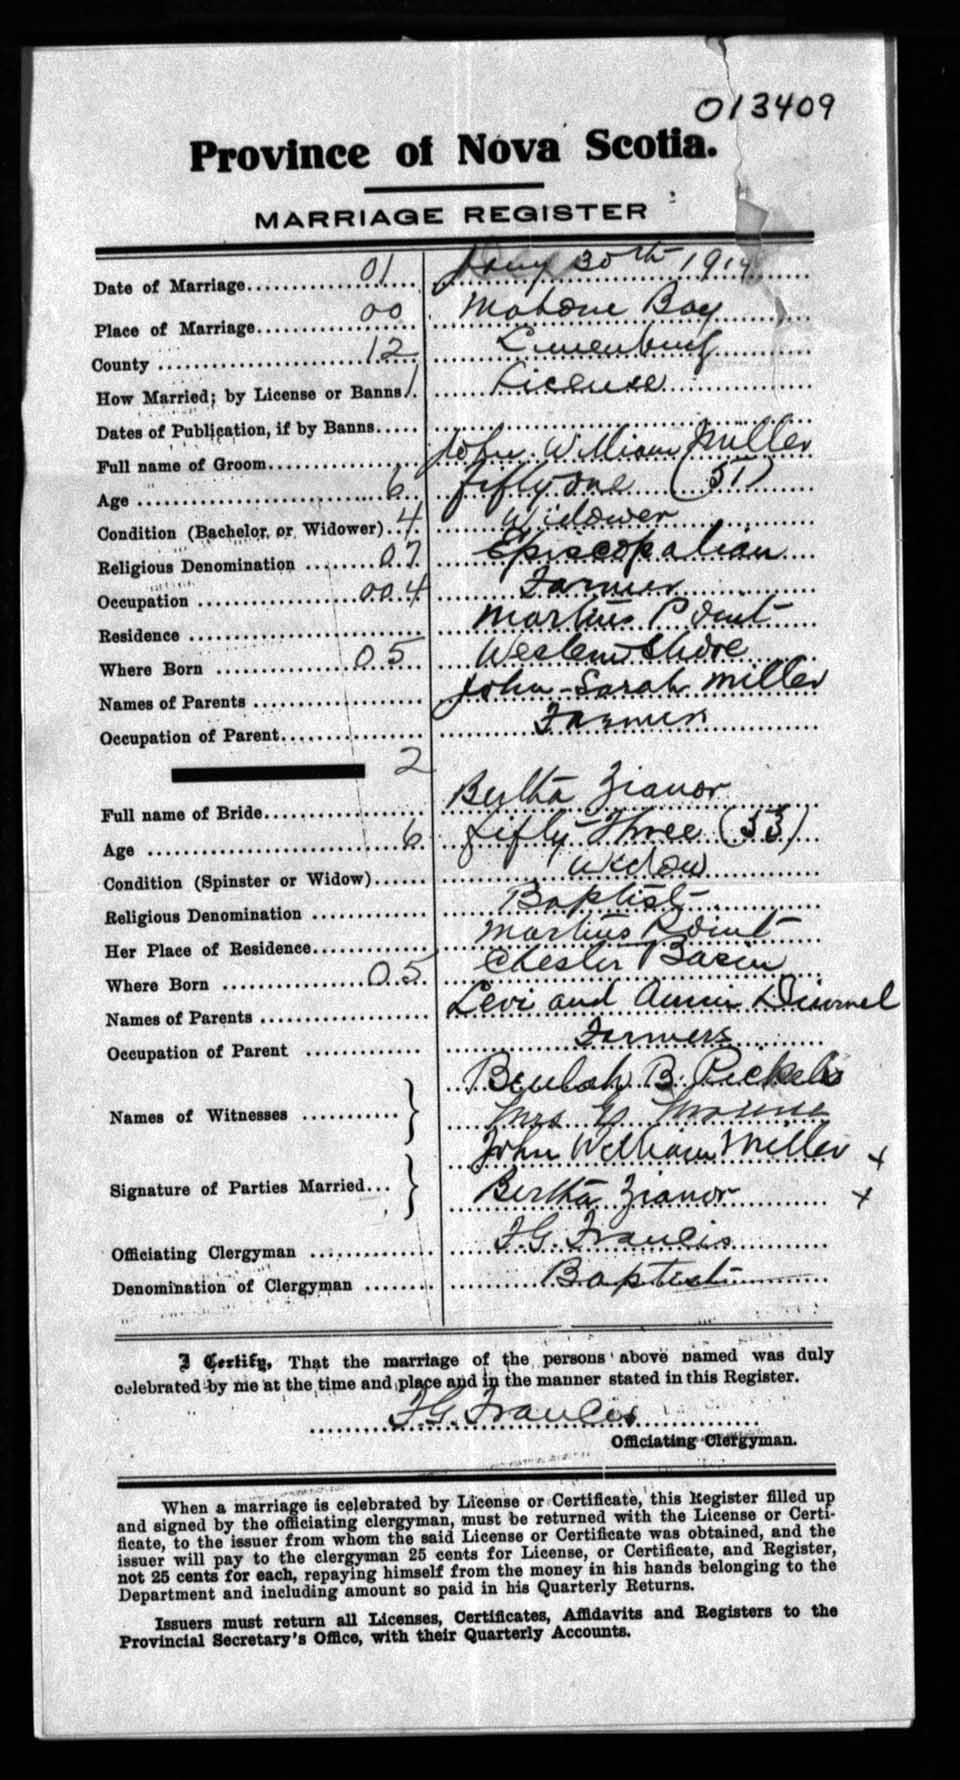 013409
Province of Nova Scotia.
MARRIAGE REGISTER
Date of Marriage 01 Jany 30th 1914
Place of Marriage 00 Mahone Bay
County 12 Lunenburg
How Married; by License or Banns 1 License
Dates of Publication, if by Banns
Full name of Groom John William Miller
Age 6 fifty one (51)
Condition (Bachelor or Widower) 4 Widower
Religious Denomination 07 Episcopalian
Occupation 004 Farmer
Residence Martins Point
Where Born 05 Western Shore
Names of Parents John - Sarah Miller
Occupation of Parent Farmer
2
Full name of Bride Bertha Zianor
Age 6 fifty Three (53)
Condition (Spinster or Widow) Widow
Religious Denomination Baptist
Her Place of Residence Martins Point
Where Born 05 Chester Basin
Names of Parents Levi and Annie
Occupation of Parent Farmers
Names of Witnesses } Beulah B. Pickels
Mrs
Signature of Parties Married } John William Miller x
Bertha Zianor x
Officiating Clergyman F G. Francis
Denomination of Clergyman Baptist
I Certify, That the marriage of the persons above named was duly
celebrated by me at the time and place and in the manner stated in this Register.
F G. Francis
Officiating Clergyman.
When a marriage is celebrated by License or Certificate, this Register filled up
and signed by the officiating clergyman, must be returned with the License or Certi-
ficate, to the issuer from whom the said License or Certificate was obtained, and the
issuer will pay to the clergyman 25 cents for License, or Certificate, and Register,
not 25 cents for each, repaying himself from the money in his hands belonging to the
Department and including amount so paid in his Quarterly Returns.
Issuers must return all Licenses, Certificates, Affidavits and Registers to the
Provincial Secretary's Office, with their Quarterly Accounts.